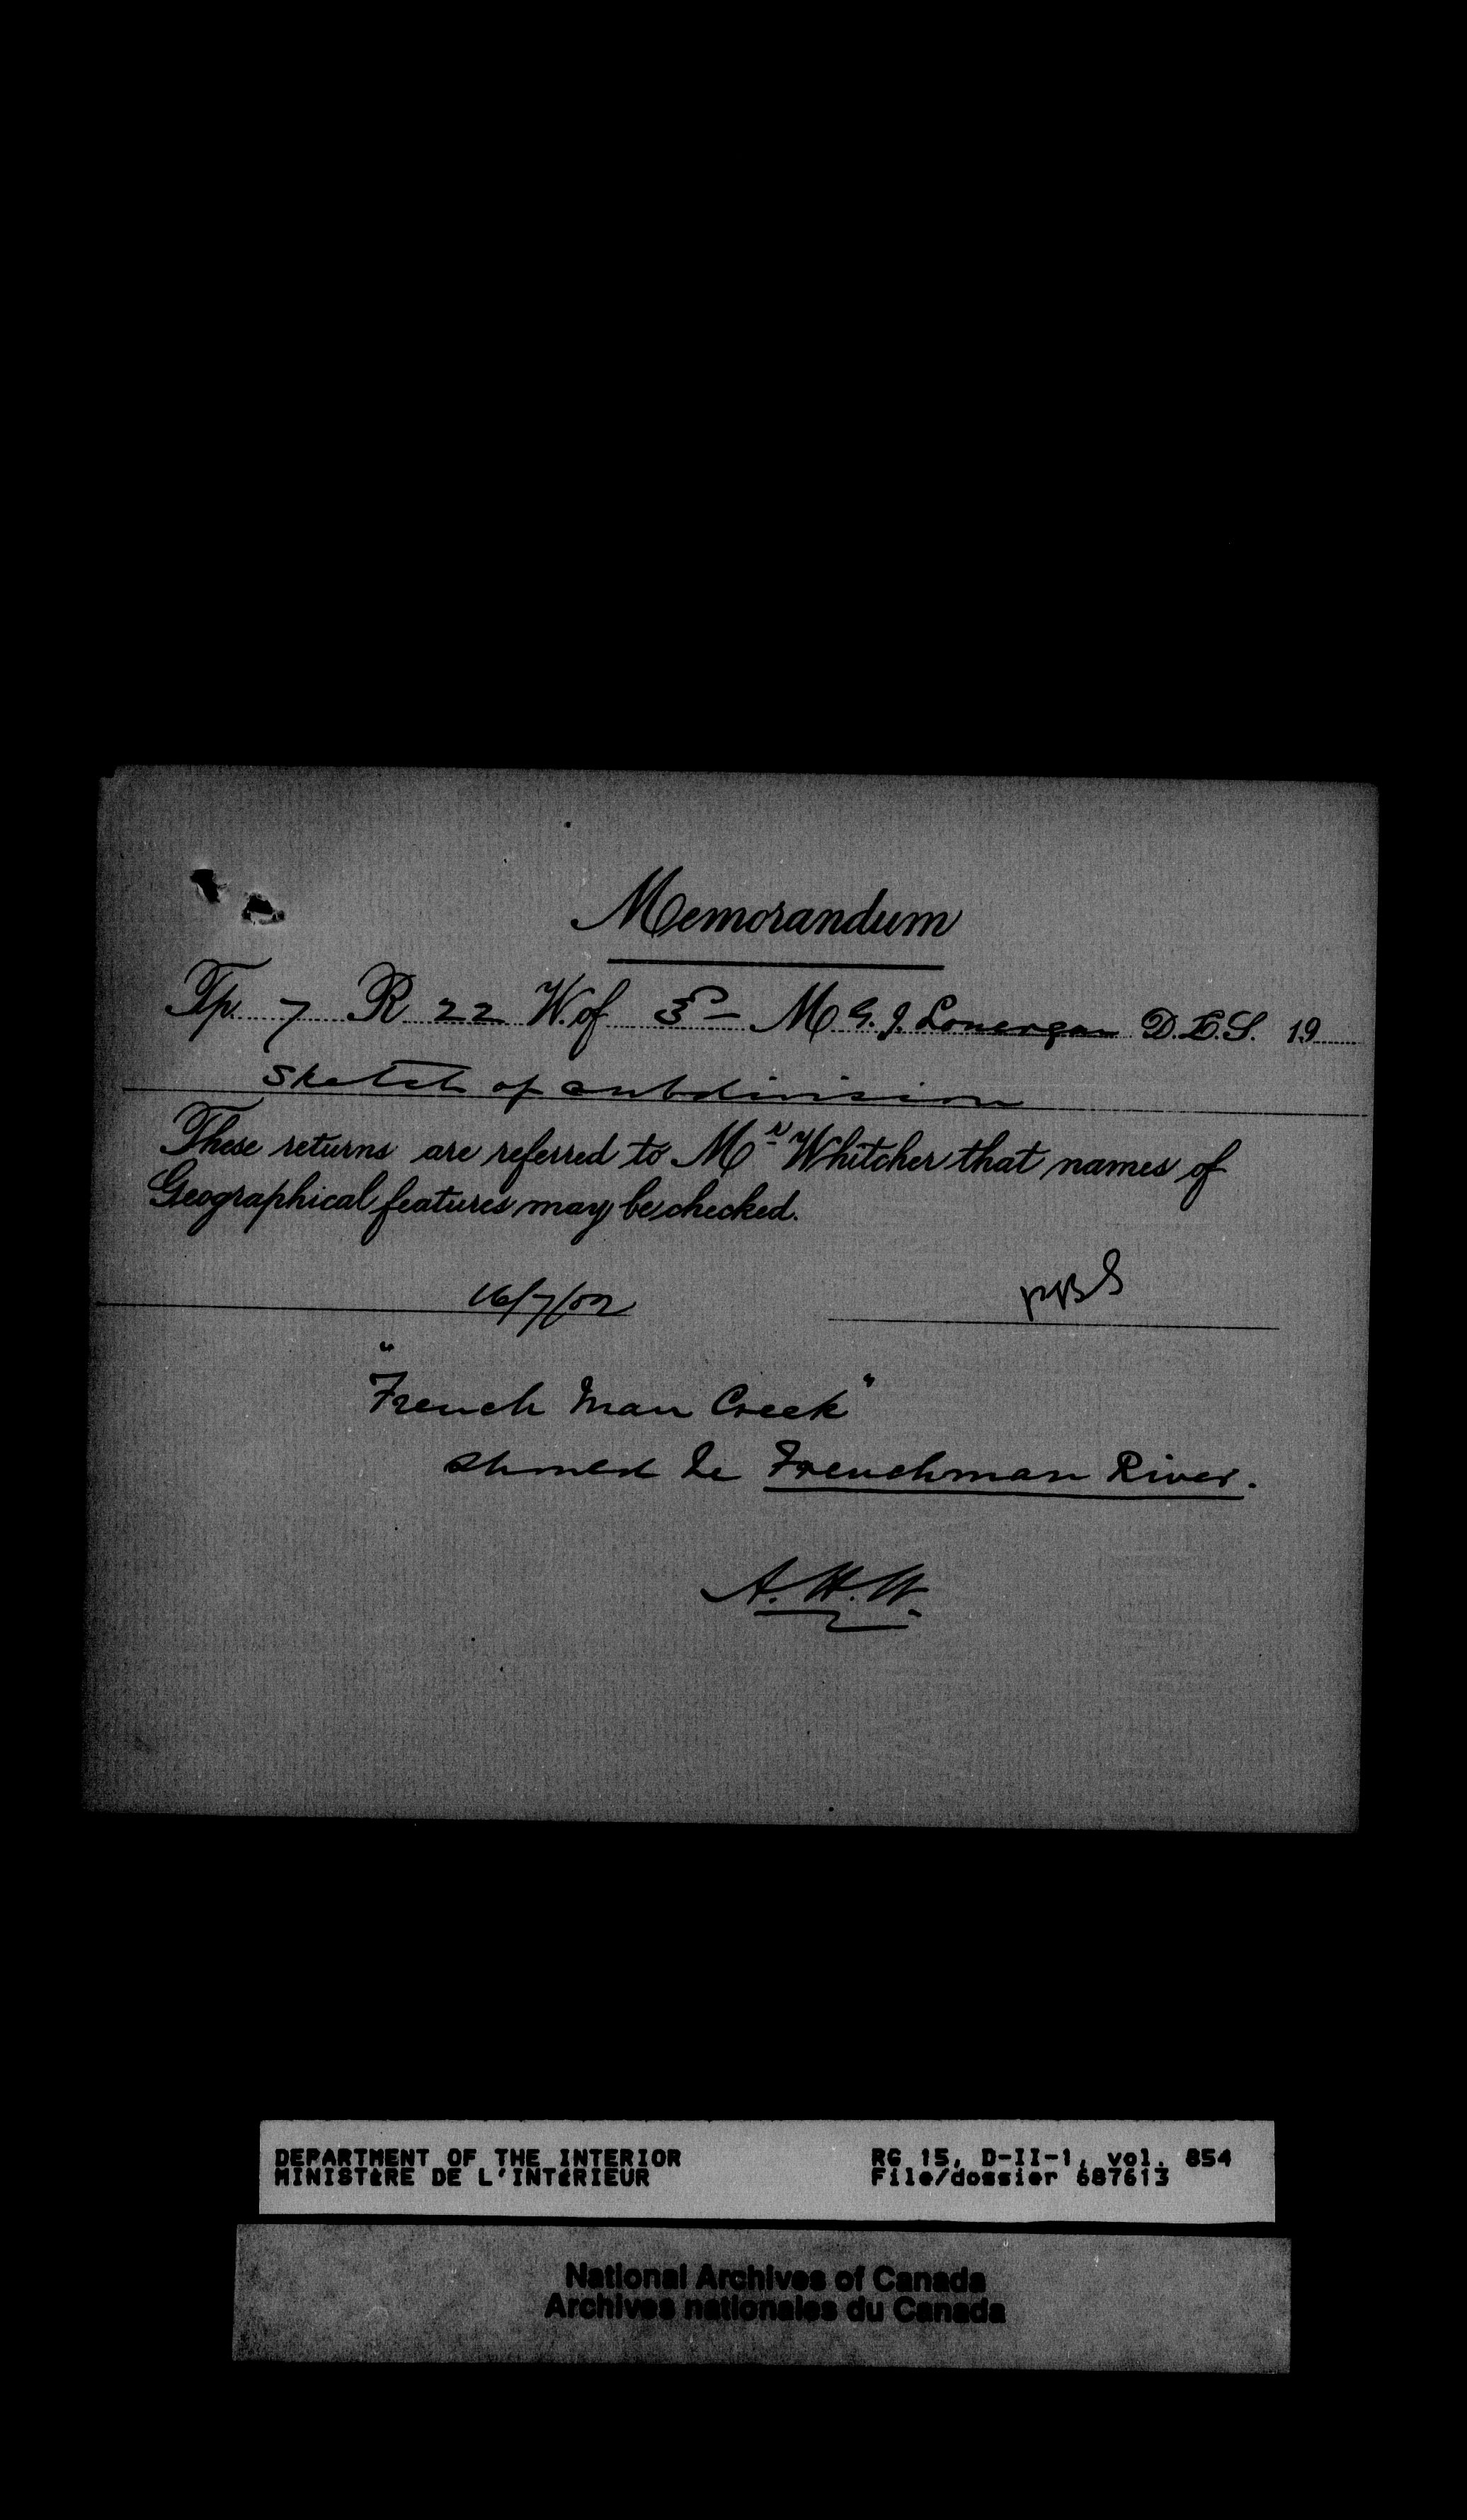 Memorandum
Tp. 7 R 22 W. of 3 – M G. J. Lonergan D.L.S. 19
Sketch of subdivision
These returns are referred to Mr Whitcher that names of
Geographical features may be checked.
16/7/02
"French Man Creek"
should be Frenchman River.
A.H.W.
DEPARTMENT OF THE INTERIOR RG 15, D-II-1, vol. 854
MINISTÈRE DE L'INTÉRIEUR File/dossier 687613
National Archives of Canada
Archives nationales du Canada